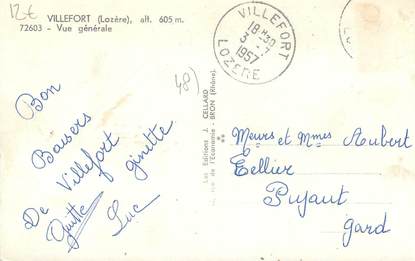 12€
VILLEFORT (Lozère), alt. 605 m.
72603 - Vue générale
VILLEFORT
18H30
3-7
1957
LOZERE
LO
48)
Bon
Baisers
De Villefort
ginette
Luc
Les Editions J. CELLARD
rue de l'Economie - BRON (Rhône)
Meurs et Mmes Aubert
Tellier
Pujaut
gard